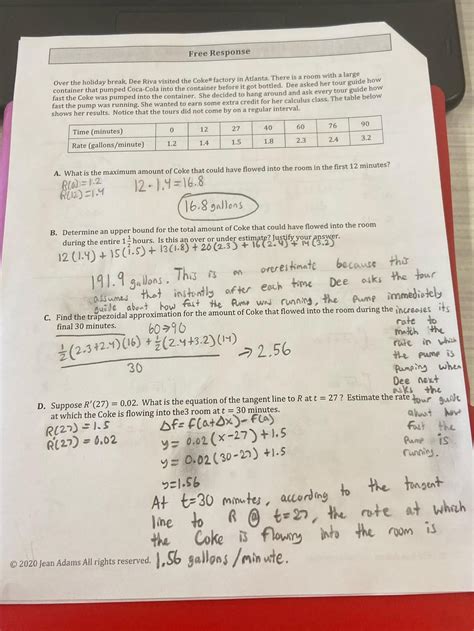 Free Response
Over the holiday break, Dee Riva visited the Coke® factory in Atlanta. There is a room with a large
container that pumped Coca-Cola into the container before it got bottled. Dee asked her tour guide how
fast the Coke was pumped into the container. She decided to hang around and ask every tour guide how
fast the pump was running. She wanted to earn some extra credit for her calculus class. The table below
shows her results. Notice that the tours did not come by on a regular interval.
Time (minutes) 0 12 27 40 60 76 90
Rate (gallons/minute) 1.2 1.4 1.5 1.8 2.3 2.4 3.2
A. What is the maximum amount of Coke that could have flowed into the room in the first 12 minutes?
R(0)=1.2
R(12)=1.4
12 · 1.4 = 16.8
16.8 gallons
B. Determine an upper bound for the total amount of Coke that could have flowed into the room
during the entire 1 1/2 hours. Is this an over or under estimate? Justify your answer.
12(1.4) + 15(1.5) + 13(1.8) + 20(2.3) + 16(2.4) + 14(3.2)
191.9 gallons. This is an overestimate because this
assumes that instantly after each time Dee asks the tour
guide about how fast the pump was running, the pump immediately
increases its
rate to
match the
rate in which
the pump is
pumping when
Dee next
asks the
tour guide
about how
fast the
pump is
running.
C. Find the trapezoidal approximation for the amount of Coke that flowed into the room during the
final 30 minutes.
60→90
1/2(2.3+2.4)(16) + 1/2(2.4+3.2)(14)
30
→ 2.56
D. Suppose R'(27) = 0.02. What is the equation of the tangent line to R at t = 27? Estimate the rate
at which the Coke is flowing into the3 room at t = 30 minutes.
R(27) = 1.5
R'(27) = 0.02
Δf = f(a+Δx)-f(a)
y = 0.02(x-27) + 1.5
y = 0.02(30-27) + 1.5
y=1.56
At t=30 minutes, according to the tangent
line to R @ t=27, the rate at which
the Coke is flowing into the room is
1.56 gallons/minute.
© 2020 Jean Adams All rights reserved.